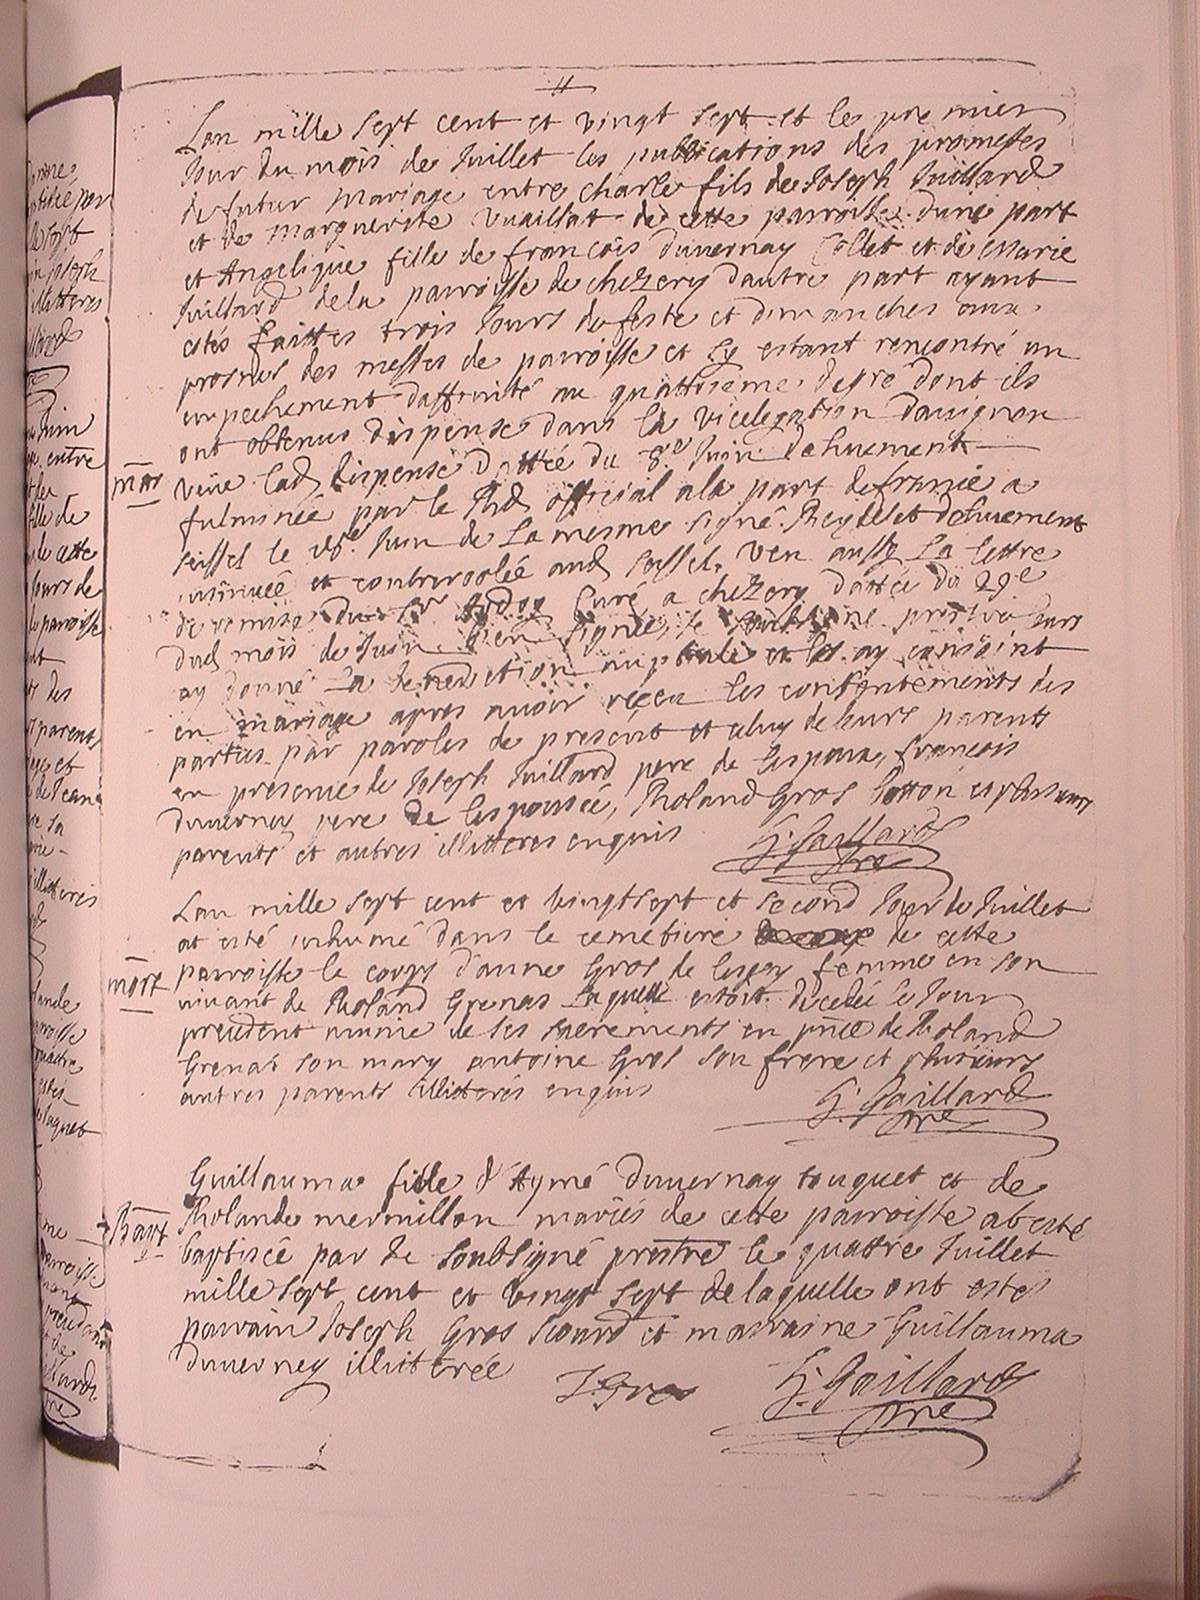 11
Lan mille sept cent et vingt sept et le premier
Jour du mois de Juillet les publications des promesses
de futur mariage entre Charle fils de Joseph Juillard
et de marguerite Vuaillat de cette parroisse dune part
et Angelique fille de françois duvernay Collet et de Marie
Juillard dela parroisse de chezery dautre part ayant
estés faittes trois Jours de feste et dimanches aux
prosnes des messes de parroisse et sy estant rencontré un
empechement daffinité au quattrieme degré dont ils
ont obtenus dispense dans la vicelegation davignon
mar
veüe lad dispense dattée du 8e Juin dehuement
fulminée par le Rd official a la part de france a
seissel le Juin de La mesme signé Reydelet dehuement
insinueé et controoleé aud seissel, veu aussy La lettre
de remise du Sr Curé a chezery dattée du 29e
dud mois de Juin bien signée, Je
ay donné La benediction nuptiale et les ay conjoint
en mariage apres avoir reçeu les consentements des
parties par paroles de present et celuy de leurs parents
en presence de Joseph Juillard pere de lespoux, françois
duvernay pere de lespouseé, Roland Gros Cotton et plusieurs
parents et autres illitteres enquis
G. Gaillard
ptre
Lan mille sept cent et vingtsept et second Jour de Juillet
at esté inhumé dans le cemetiere de cette
mort
parroisse le corps danne Gros de femme en son
vivant de Roland Grenat Laquelle estoit decedeé le Jour
precedent munie de ses sacrements en pnce de Roland
Grenat son mary antoine Gros son frere et plusieurs
autres parents illitterés enquis
G. Gaillard
ptre
Guillauma fille d'Aymé duvernay touquet et de
Rolande mermillon mariés de cette parroisse at esté
Bapt
baptiseé par Je soubsigné prestre le quattre Juillet
mille sept cent et vingt sept de laquelle ont estés
parrain Joseph Gros et marraine Guillauma
duvernay illitterée
J. Gros
G. Gaillard
ptre